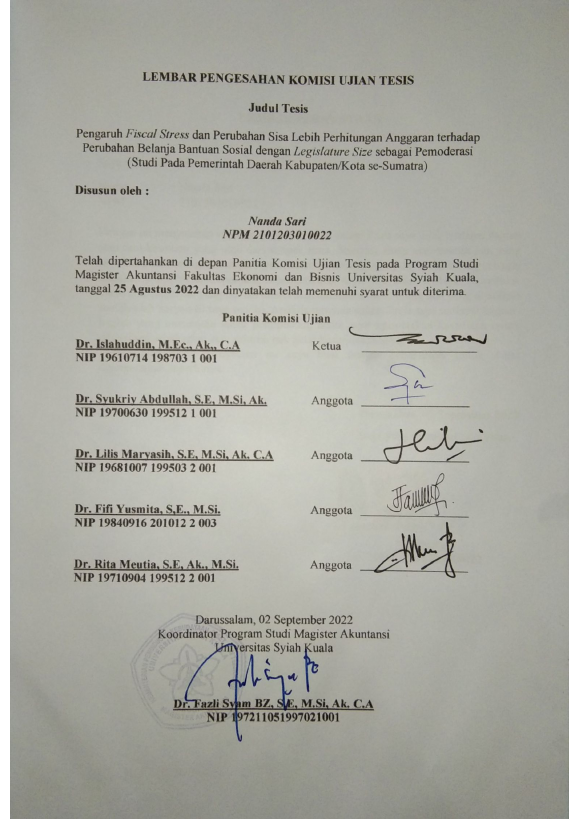 LEMBAR PENGESAHAN KOMISI UJIAN TESIS
Judul Tesis
Pengaruh Fiscal Stress dan Perubahan Sisa Lebih Perhitungan Anggaran terhadap
Perubahan Belanja Bantuan Sosial dengan Legislature Size sebagai Pemoderasi
(Studi Pada Pemerintah Daerah Kabupaten/Kota se-Sumatra)
Disusun oleh :
Nanda Sari
NPM 2101203010022
Telah dipertahankan di depan Panitia Komisi Ujian Tesis pada Program Studi
Magister Akuntansi Fakultas Ekonomi dan Bisnis Universitas Syiah Kuala,
tanggal 25 Agustus 2022 dan dinyatakan telah memenuhi syarat untuk diterima.
Panitia Komisi Ujian
Dr. Islahuddin, M.Ec., Ak., C.A Ketua
NIP 19610714 198703 1 001
Dr. Syukriy Abdullah, S.E, M.Si, Ak. Anggota
NIP 19700630 199512 1 001
Dr. Lilis Maryasih, S.E, M.Si, Ak. C.A Anggota
NIP 19681007 199503 2 001
Dr. Fifi Yusmita, S,E., M.Si. Anggota
NIP 19840916 201012 2 003
Dr. Rita Meutia, S.E, Ak., M.Si. Anggota
NIP 19710904 199512 2 001
Darussalam, 02 September 2022
Koordinator Program Studi Magister Akuntansi
Universitas Syiah Kuala
Dr. Fazli Syam BZ, S,E, M.Si, Ak. C.A
NIP 197211051997021001